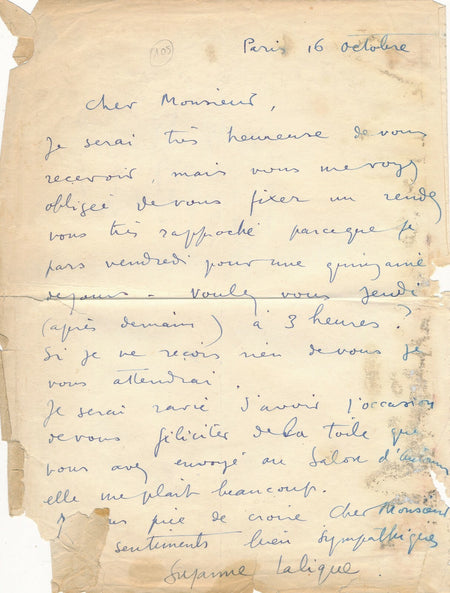 105
Paris 16 octobre
Cher Monsieur,
Je serai très heureuse de vous
recevoir, mais vous me voyez
obligée de vous fixer un rendez
vous très rapproché parceque je
pars vendredi pour une quinzaine
de jours - Voulez vous Jeudi
(après demain) à 3 heures ?
Si je ne reçois rien de vous je
vous attendrai.
Je serai ravie d'avoir l'occasion
de vous féliciter de la toile que
vous avez envoyé au Salon d'automne
elle me plait beaucoup.
prie de croire Cher Monsieur
sentiments bien sympathiques
Suzanne Lalique